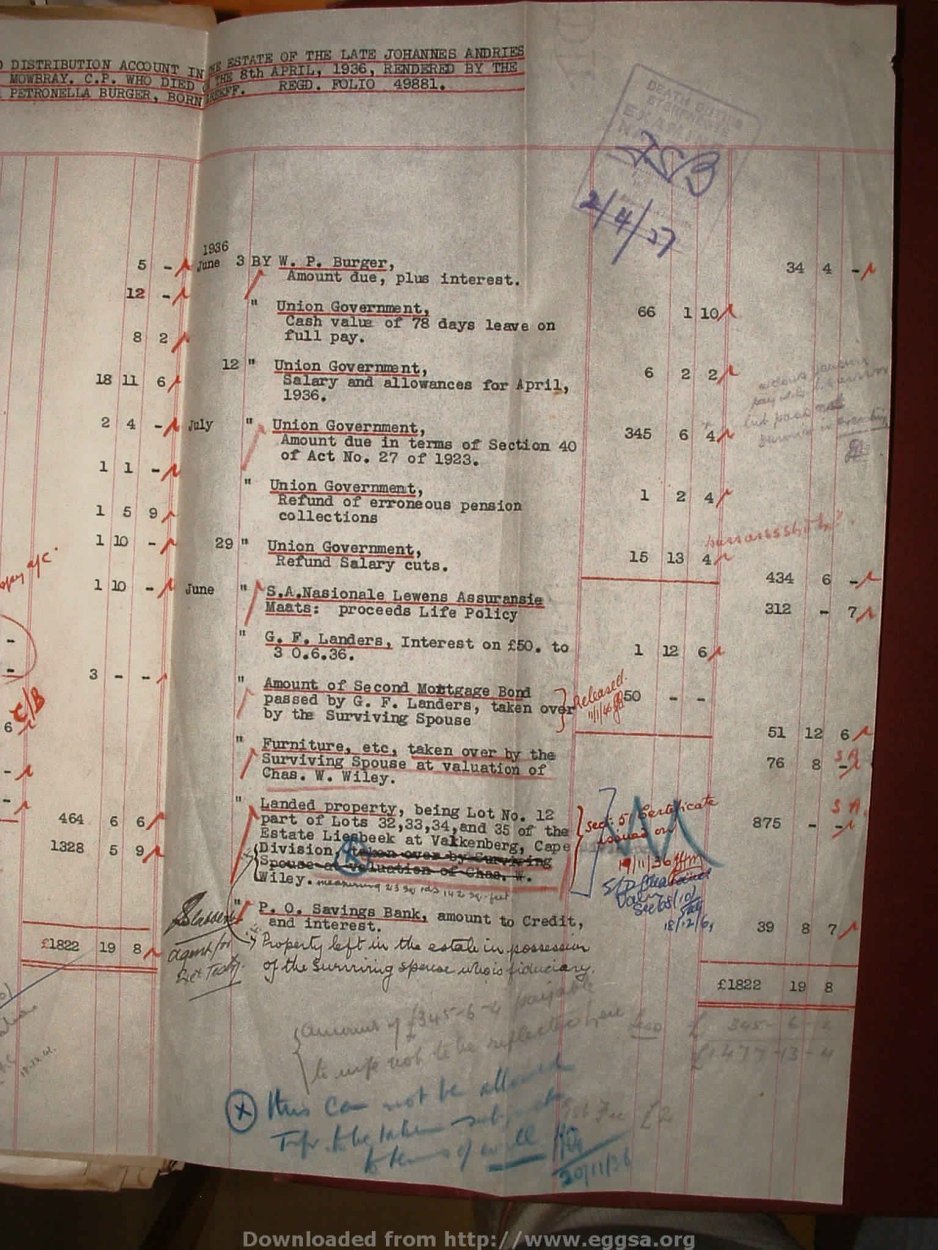 D DISTRIBUTION ACCOUNT IN THE ESTATE OF THE LATE JOHANNES ANDRIES
MOWBRAY, C.P. WHO DIED THE 8th APRIL, 1936, RENDERED BY THE
PETRONELLA BURGER, BORN REGD. FOLIO 49881.
DEATH DUTIES
2/4/37
1936
5 - June 3 BY W. P. Burger, 34 4 -
Amount due, plus interest.
12 -
" Union Government, 66 1 10
Cash value of 78 days leave on
8 2 full pay.
12 " Union Government, 6 2 2
18 11 6 Salary and allowances for April,
1936.
2 4 - July " Union Government, 345 6 4
Amount due in terms of Section 40
1 1 - of Act No. 27 of 1923.
" Union Government, 1 2 4
Refund of erroneous pension
1 5 9 collections
1 10 - 29 " Union Government, 15 13 4
Refund Salary cuts.
434 6 -
1 10 - June " S.A.Nasionale Lewens Assuransie 312 - 7
Maats: proceeds Life Policy
" G. F. Landers, Interest on £50. to 1 12 6
3 0.6.36.
3 - - " Amount of Second Mortgage Bond 50 - -
passed by G. F. Landers, taken over Released.
by the Surviving Spouse
51 12 6
" Furniture, etc, taken over by the 76 8 -
Surviving Spouse at valuation of
Chas. W. Wiley.
" Landed property, being Lot No. 12 875 - -
464 6 6 part of Lots 32,33,34,and 35 of the
Estate Liesbeek at Valkenberg, Cape
1328 5 9 Division, taken over by Surviving
Spouse at valuation of Chas. W.
Wiley.
Sec: 5 Certificate
issued on
19/11/36
18/12/61
" P. O. Savings Bank, amount to Credit, 39 8 7
and interest.
£1822 19 8
agent for
Property left in the estate in possession
of the Surviving spouse who is fiduciary.
£1822 19 8
amount of £345-6-4 payable
to wife not to be reflected here
£ 345-6-4
£1477-13-4
Fee £2
(x) this can not be allowed
to terms of will
20/11/36
Downloaded from http://www.eggsa.org